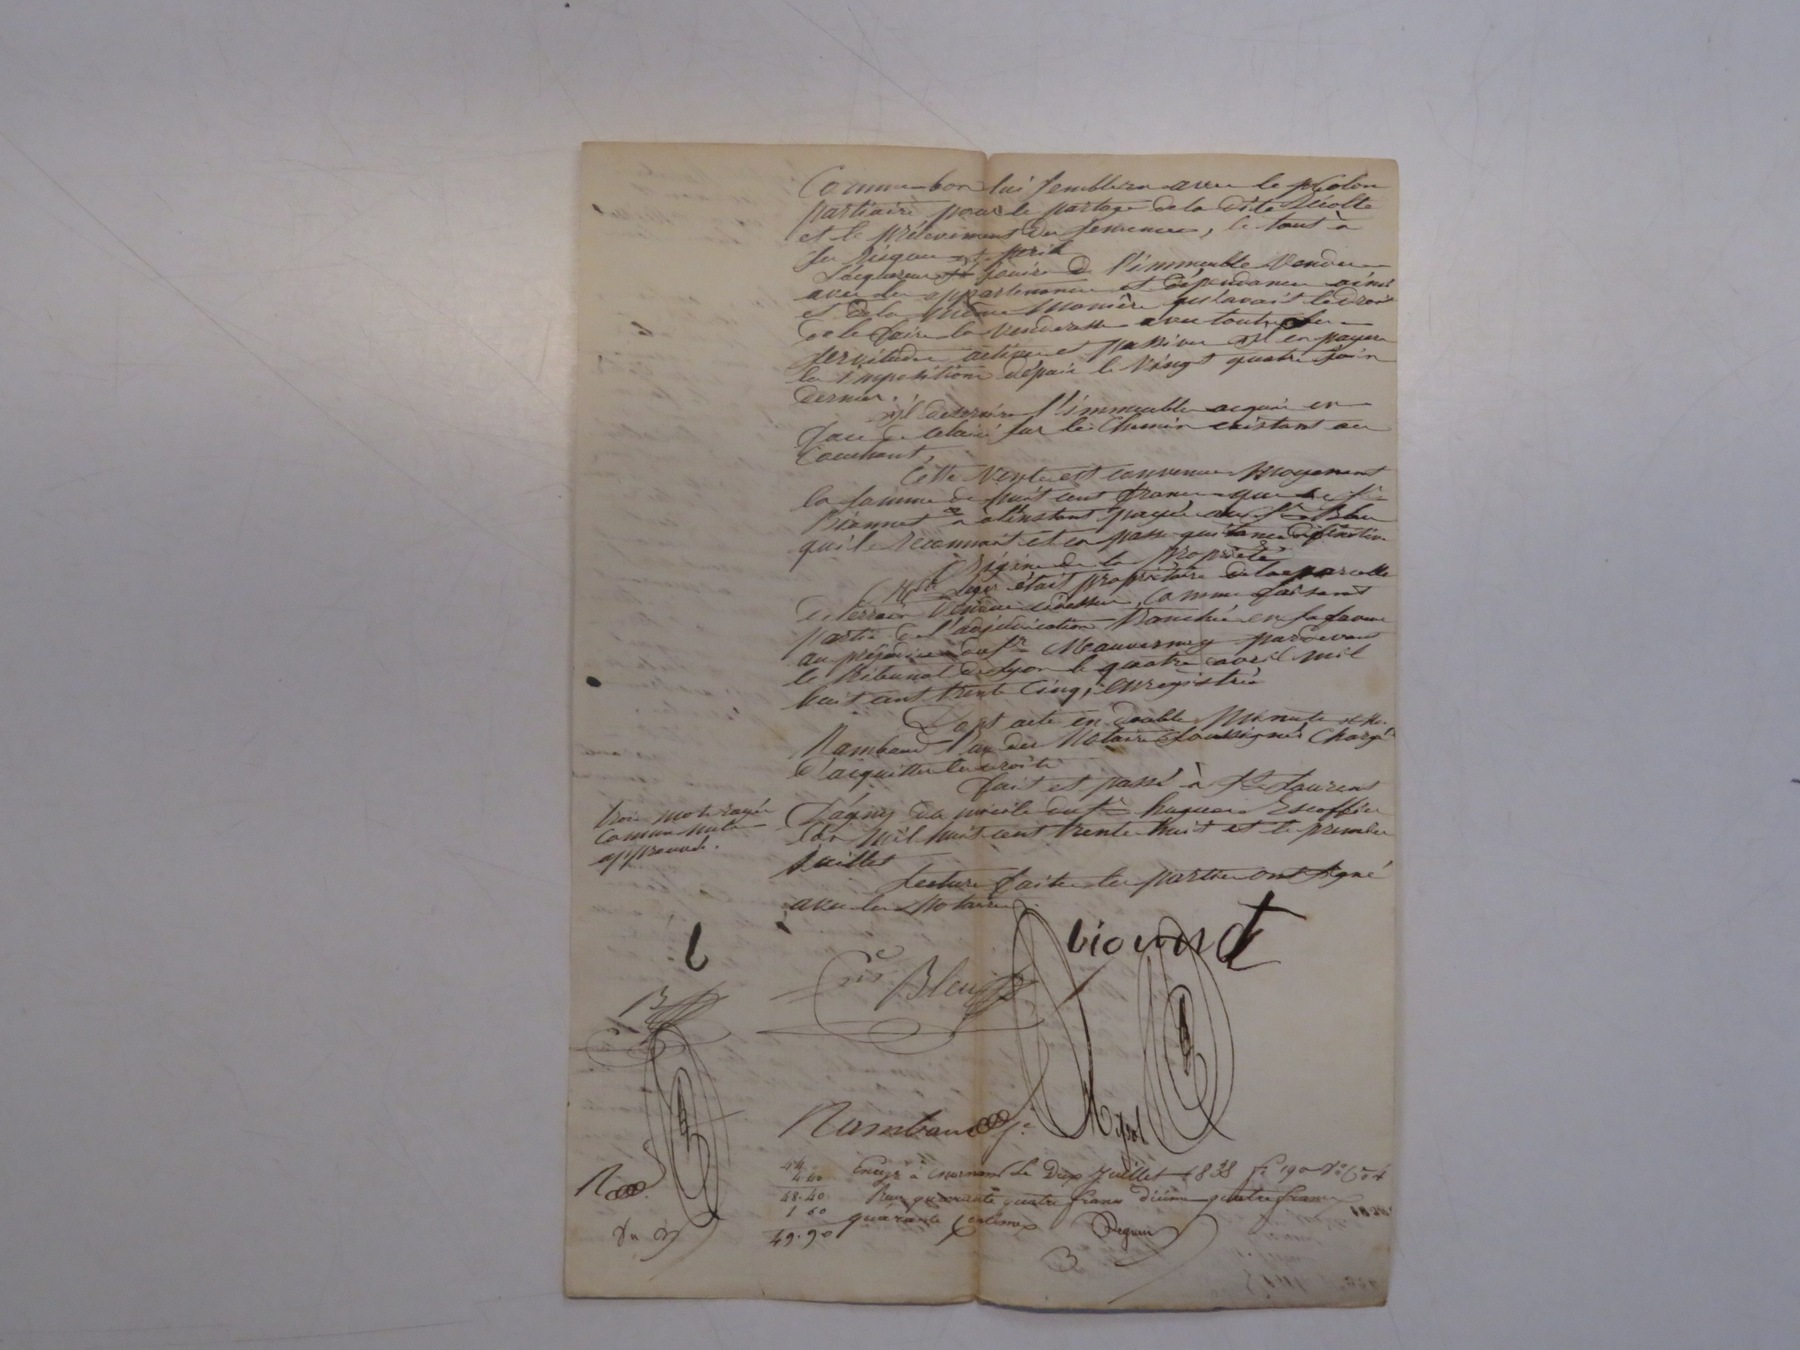 Comme bon lui semblera avec le Colon
partiaire pour le partage de la dite Récolte
et le prélèvement des semences, le tout à
ses risques et péril
L'acquéreur jouira de l'immeuble vendu
avec les appartenances et dépendances ainsi
et de la même manière qu'avait le droit
de le faire la venderesse avec toutes ses
servitudes actives et passives il en payera
les impositions depuis le vingt quatre juin
dernier.
Il l'immeuble acquis en
face de celui sur le chemin existant au
Couchant,
Cette vente est convenue moyenant
la somme de huit cent francs que le Sr
Bionnet a à l'instant payé au Sr Bleu
qui le reconnait et en passe quittance définitive
Origine de la propriété
Léger était propriétaire de la parcelle
de terrain vendue cidessus, comme faisant
partie de l'adjudication tranchée en sa faveur
au préjudice du Sr Mauvernay pardevant
le tribunal de Lyon le quatre avril mil
huit cent trente cinq, enregistrée
Dont acte en double minute et Me
Rambaud l'un des Notaires soussignés chargé
d'acquitter les droits
fait et passé à St Laurent
d'agny domicile du Sr hugues Escoffier
L'an mil huit cent trente huit et le premier
Juillet
Lecture faite les parties ont signé
avec les Notaires
trois mots rayés
comme nuls
approuvés.
b
bionnet
Bleu
Rambaud
44
4.40
48.40
1 50
49.90
Enregé à Mornant Le Deux Juillet 1838 fo 190
Reçu quarante quatre francs dixième quatre francs
quarante centimes